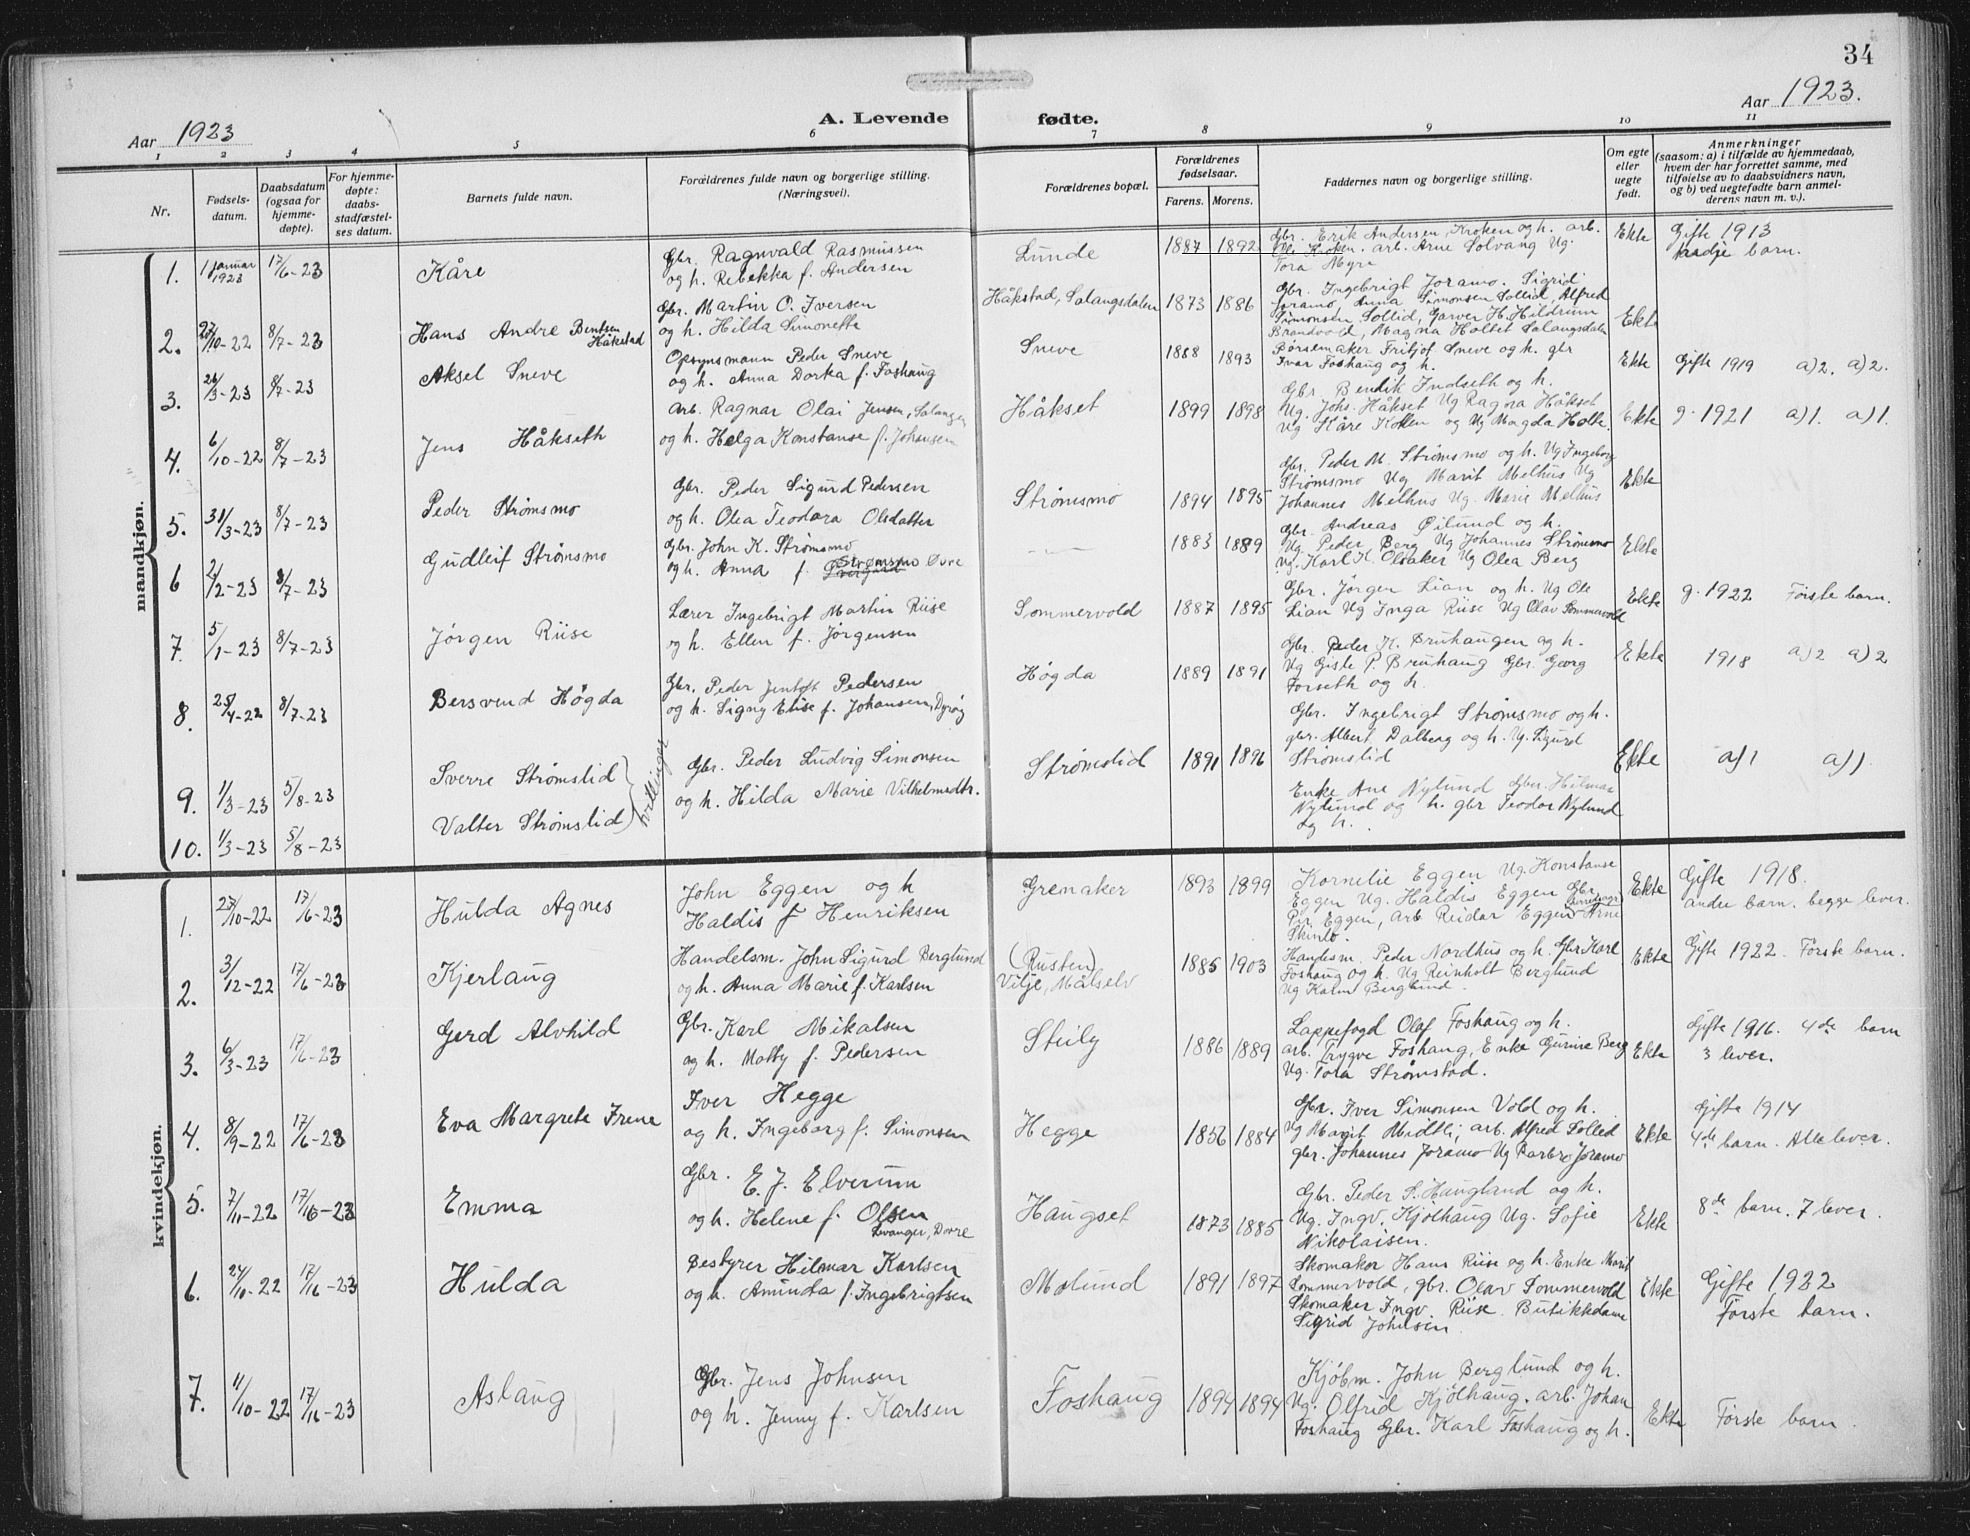 34
Aar 1923
A. Levende fødte.
Aar 1923.
1 2 3 4 5 6 7 8 9 10 11
Nr.
Fødsels-
datum.
Daabsdatum
(ogsaa for
hjemme-
døpte).
For hjemme-
døpte:
daabs-
stadfæstel-
ses datum.
Barnets fulde navn.
Forældrenes fulde navn og borgerlige stilling.
(Næringsvei).
Forældrenes bopæl.
Forældrenes
fødselsaar.
Farens. Morens.
Faddernes navn og borgerlige stilling.
Om egte
eller
uegte
født.
Anmerkninger
(saasom: a) i tilfælde av hjemmedaab,
hvem der har forrettet samme, med
tilføielse av to daabsvidners navn,
og b) ved uegtefødte barn anmel-
derens navn m. v.).
mandkjøn.
1. 1 januar 1923 17/6-23 Kåre
Gbr. Ragnvald Rasmussen
og h. Rebekka f. Andersen
Lunde 1887 1892
Gbr. Erik Andersen, Kroken og h. arb.
Ole Kroken. arb. Arne Solvang Ug.
Tora Myre
Ekte
Gifte 1913
barn.
2. 27/10-22 8/7-23 Hans Andre Bentsen
Håkstad
Gbr. Martin O. Iversen
og h. Hilda Simonette
Håkstad, Salangsdalen 1873 1886
Gbr. Ingebrigt Joramo. Sigrid
Joramo, Anna Simonsen Sollid, Alfred
Simonsen Sollid, Garver H. Hildrum
Brandvold, Magna Holtet Salangsdalen
Ekte
3. 26/3-23 8/7-23 Aksel Sneve
Opsynsmann Peder Sneve
og h. Anna Dorka f. Foshaug
Sneve 1888 1893
Børsemaker Fritjof Sneve og h. gbr
Ivar Foshaug og h.
Ekte Gifte 1919 a)2. a)2.
4. 6/10-22 8/7-23 Jens Håkseth
Arb. Ragnar Olai Jensen, Salangen
og h. Helga Konstanse f. Johansen
Håkset 1899 1898
Gbr Bendik Indseth og h.
Ug. Johs. Håkset Ug Ragna Håkset
Ug Kåre Koken og Ug Magda Holte.
Ekte g. 1921 a)1. a)1.
5. 31/3-23 8/7-23 Peder Strømsmo
Gbr. Peder Sigurd Pedersen
og h. Olea Teodora Olsdatter
Strømsmo 1894 1895
Gbr. Peder M. Strømsmo og h. Ug Ingeborg
Strømsmo Ug Marit Melhus Ug
Johannes Melhus Ug. Marie Melhus
Ekte
6 2/2-23 8/7-23 Gudleif Strømsmo
Gbr. John K. Strømsmo
og h. Anna f. Strømsmo Øvre
1883 1889
Gbr. Andreas Øilund og h.
Ug. Peder Berg Ug Johannes Strømsmo
Ug. Karl K. Olsaker Ug Olea Berg
Ekte
7. 5/1-23 8/7-23 Jørgen Riise
Lærer Ingebrigt Martin Riise
og h. Ellen f. Jørgensen
Sommervold 1887 1895
Gbr. Jørgen Lian og h. Ug Ole
Lian Ug Inga Riise Ug Olav Sommervold
Ekte g. 1922 Første barn.
8. 28/4-22 8/7-23 Bersvend Høgda
Gbr. Peder Jentoft Pedersen
og h. Signy Elise f. Johansen, Dyrøy
Høgda 1889 1891
Gbr. Peder K. Bruhaugen og h.
Ug Giste P. Bruhaug Gbr. Georg
Forseth og h.
Ekte 1918 a)2 a)2
9. 1/3-23 5/8-23 Sverre Strømslid
10. 1/3-23 5/8-23 Valter Strømslid
tvillinger
Gbr. Peder Ludvig Simonsen
og h. Hilda Marie Vilhelmsdtr.
Strømslid 1891 1896
Gbr. Ingebrigt Strømsmo og h.
gbr. Albert Dalberg og h. Ug. Sigurd
Strømslid
Enke Ane Nylund Gbr. Hilmar
Nylund og h. gbr Teodor Nylund
og h.
Ekte a)1 a)1
kvindekjøn.
1. 27/10-22 17/6-23 Hulda Agnes
John Eggen og h
Haldis f Henriksen
Grenaker 1893 1899
Kornelie Eggen Ug. Konstanse
Eggen Ug. Haldis Eggen Gbr
Pir Eggen, arb Reidar Eggen Arne
Skinlo.
Ekte
Gifte 1918.
andre barn. begge lever.
2. 3/12-22 17/6-23 Kjerlaug
Handelsm. John Sigurd Berglund
og h. Anna Marie f. Karlsen
(Rusten)
Vilje, Målselv 1885 1903
Handesm. Peder Nordhus og h. Gbr Karl
Foshaug og h. Ug Reinholt Berglund
Ug Kalm Berglund.
Ekte Gifte 1922. Første barn.
3. 6/3-23 17/6-23 Gerd Alvhild
Gbr. Karl Mikalsen
og h. Matty f. Pedersen
Steily 1886 1889
Lappefogd Olaf Foshaug og h.
arb. Trygve Foshaug, Enke Gurine Berg
Ug. Tora Strømstad.
Ekte
Gifte 1916. 4de barn
3 lever.
4. 8/9-22 17/6-23 Eva Margrete Irene
Iver Hegge
og h. Ingeborg f. Simonsen
Hegge 1856 1884
Gbr. Iver Simonsen Vold og h.
Ug Marit Midtli, arb. Alfred Sollid
gbr. Johannes Joramo Ug Barbro Joramo
Ekte
Gifte 1914
4de barn. Alle lever.
5. 7/11-22 17/6-23 Emma
Gbr. E. J. Elverum
og h. Helene f. Olsen
Levanger, Dovre
Haugset 1873 1885
Gbr. Peder S. Haugland og h.
Ug. Ingv. Kjølhaug Ug. Sofie
Nikolaisen.
Ekte 8de barn. 7 lever.
6. 24/10-22 17/6-23 Hulda
Bestyrer Hilmar Karlsen
og h. Aminda f. Ingebrigtsen
Molund 1891 1897
Skomaker Hans Riise og h. Enke Marit
Sommervold, gbr. Olav Sommervold
Skomaker Ingv. Riise. Butikkdame
Sigrid Johnsen.
Ekte
Gifte 1922
Første barn.
7. 11/10-22 17/6-23 Aslaug
Gbr. Jens Johnsen
og h. Jenny f. Karlsen
Foshaug 1894 1894
Kjøbm. John Berglund og h.
Ug. Olfrid Kjølhaug. arb. Johan
Foshaug Gbr. Karl Foshaug og h.
Ekte Første barn.